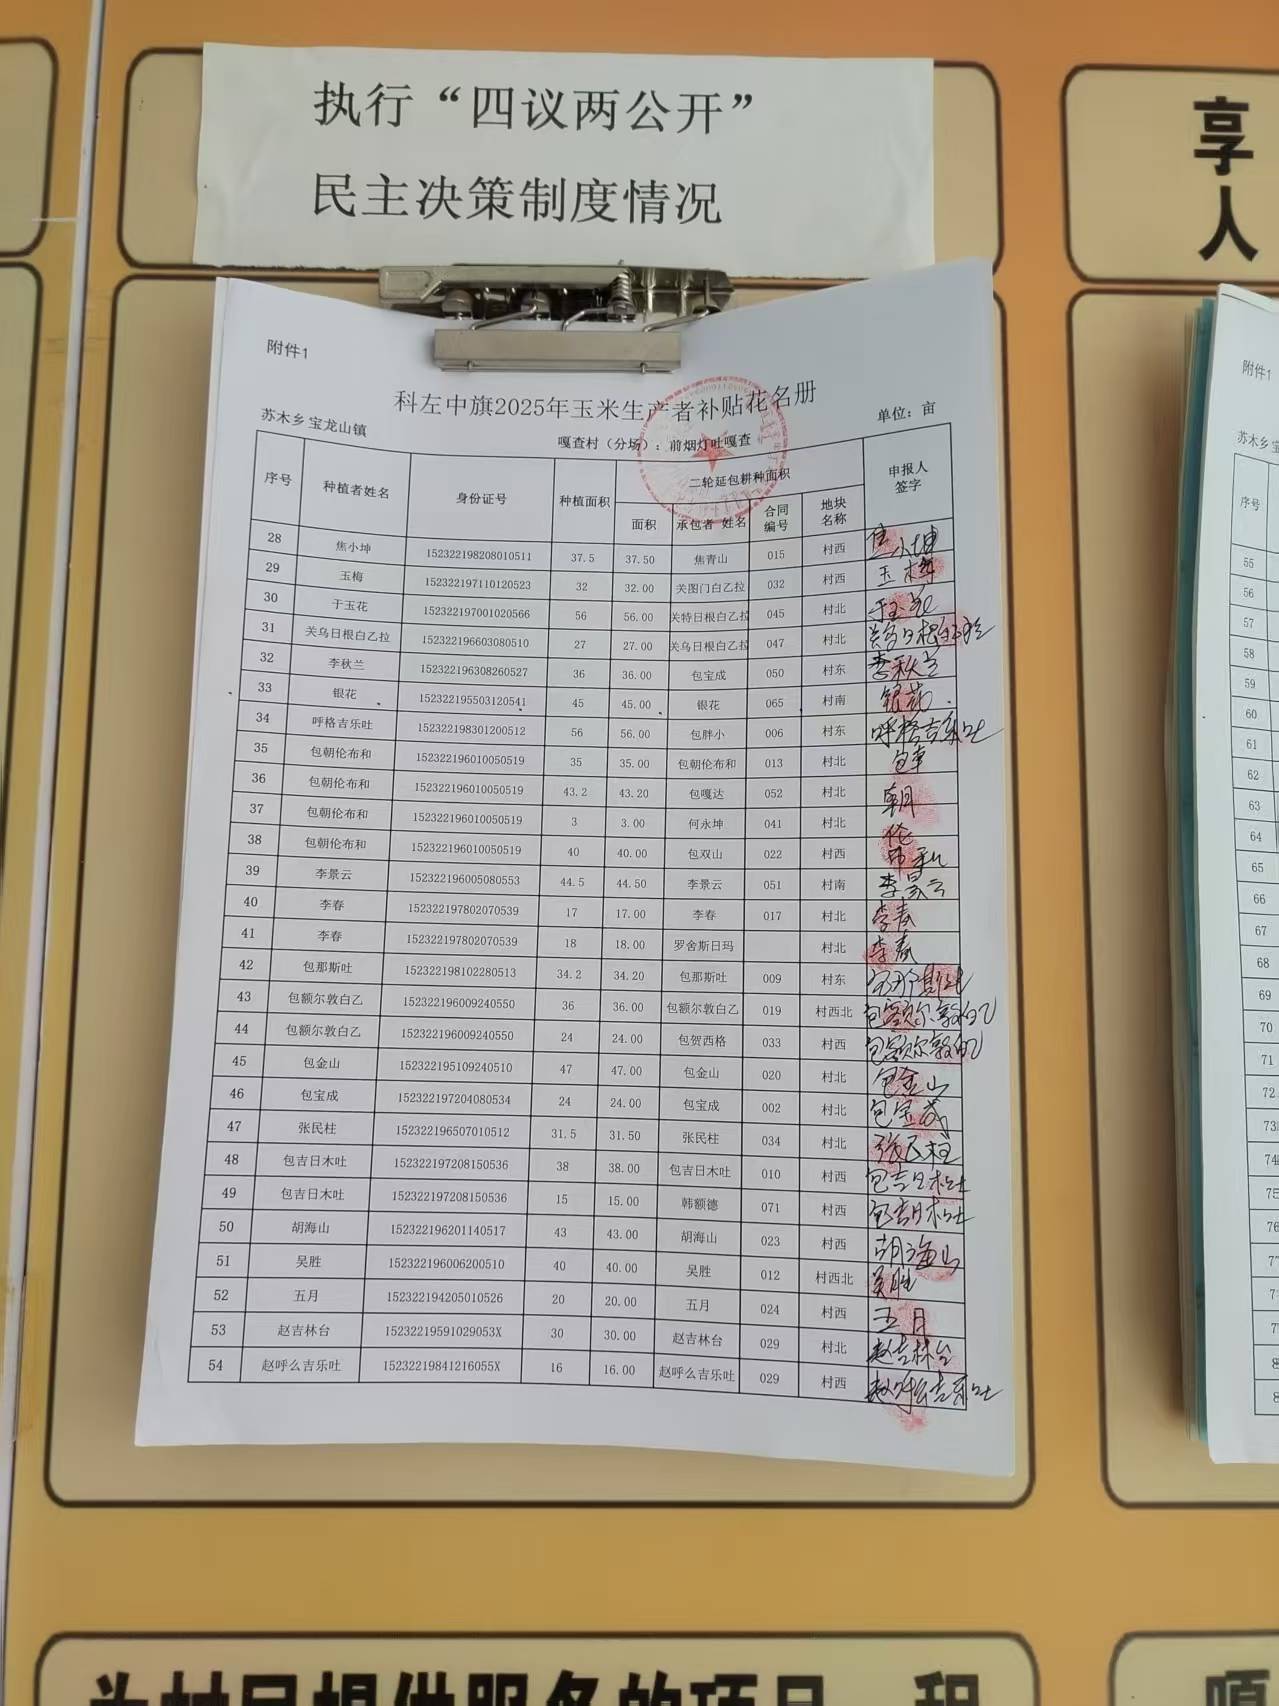 执行“四议两公开”
民主决策制度情况
享
人
附件1
科左中旗2025年玉米生产者补贴花名册
苏木乡 宝龙山镇 嘎查村（分场）：前烟灯吐嘎查 单位：亩
序号 种植者姓名 身份证号 种植面积 二轮延包耕种面积 申报人签字
面积 承包者 姓名 合同编号 地块名称
28 焦小坤 152322198208010511 37.5 37.50 焦青山 015 村西 焦小坤
29 玉梅 152322197110120523 32 32.00 关图门白乙拉 032 村西 玉梅
30 于玉花 152322197001020566 56 56.00 关特日根白乙拉 045 村北 于玉花
31 关乌日根白乙拉 152322196603080510 27 27.00 关乌日根白乙拉 047 村北 关乌日根白乙拉
32 李秋兰 152322196308260527 36 36.00 包宝成 050 村东 李秋兰
33 银花 152322195503120541 45 45.00 银花 065 村南 银花
34 呼格吉乐吐 152322198301200512 56 56.00 包胖小 006 村东 呼格吉乐吐
35 包朝伦布和 152322196010050519 35 35.00 包朝伦布和 013 村北
36 包朝伦布和 152322196010050519 43.2 43.20 包嘎达 052 村北 朝
37 包朝伦布和 152322196010050519 3 3.00 何永坤 041 村北 伦
38 包朝伦布和 152322196010050519 40 40.00 包双山 022 村西 布和
39 李景云 152322196005080553 44.5 44.50 李景云 051 村南 李景云
40 李春 152322197802070539 17 17.00 李春 017 村北 李春
41 李春 152322197802070539 18 18.00 罗舍斯日玛 村北 李春
42 包那斯吐 152322198102280513 34.2 34.20 包那斯吐 009 村东 包那斯吐
43 包额尔敦白乙 152322196009240550 36 36.00 包额尔敦白乙 019 村西北 包额尔敦白乙
44 包额尔敦白乙 152322196009240550 24 24.00 包贺西格 033 村西 包额尔敦白乙
45 包金山 152322195109240510 47 47.00 包金山 020 村北 包金山
46 包宝成 152322197204080534 24 24.00 包宝成 002 村北 包宝成
47 张民柱 152322196507010512 31.5 31.50 张民柱 034 村北 张民柱
48 包吉日木吐 152322197208150536 38 38.00 包吉日木吐 010 村西 包吉日木吐
49 包吉日木吐 152322197208150536 15 15.00 韩额德 071 村西 包吉日木吐
50 胡海山 152322196201140517 43 43.00 胡海山 023 村西 胡海山
51 吴胜 152322196006200510 40 40.00 吴胜 012 村西北 吴胜
52 五月 152322194205010526 20 20.00 五月 024 村西 五月
53 赵吉林台 15232219591029053X 30 30.00 赵吉林台 029 村北 赵吉林台
54 赵呼么吉乐吐 15232219841216055X 16 16.00 赵呼么吉乐吐 029 村西 赵呼么吉乐吐
附件1
苏木乡 宝
序号
55
56
57
58
59
60
61
62
63
64
65
66
67
68
69
70
71
72
73
74
75
76
为村民提供服务的项目、程
嘎